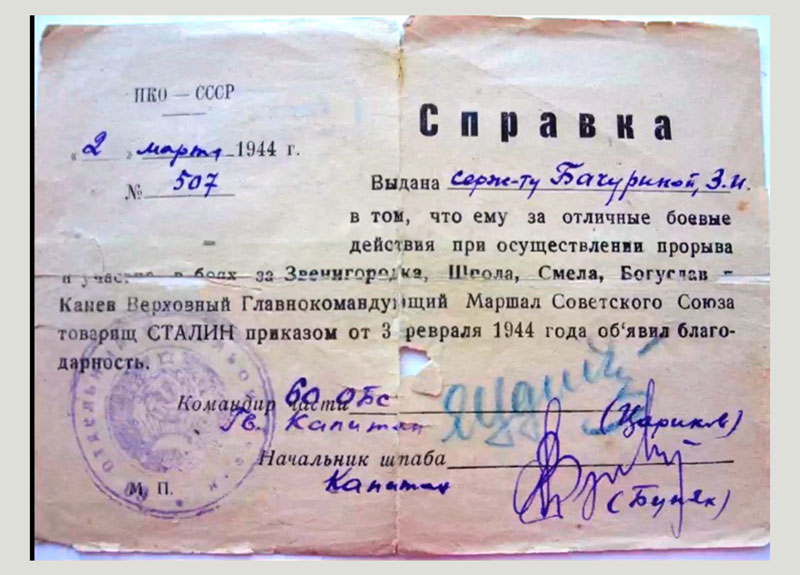 НКО — СССР
Справка
„2„ марта 1944 г.
№ 507
Выдана серж-ту Бачуриной, З.И.
в том, что ему за отличные боевые
действия при осуществлении прорыва
и участие в боях за Звенигородка, Шпола, Смела, Богуслав
Канев Верховный Главнокомандующий Маршал Советского Союза
товарищ СТАЛИН приказом от 3 февраля 1944 года об‘явил благо-
дарность.
Командир части 60 ОБС
Гв. Капитан (Цариков)
Начальник штаба
Капитан (Буняк)
М. П.